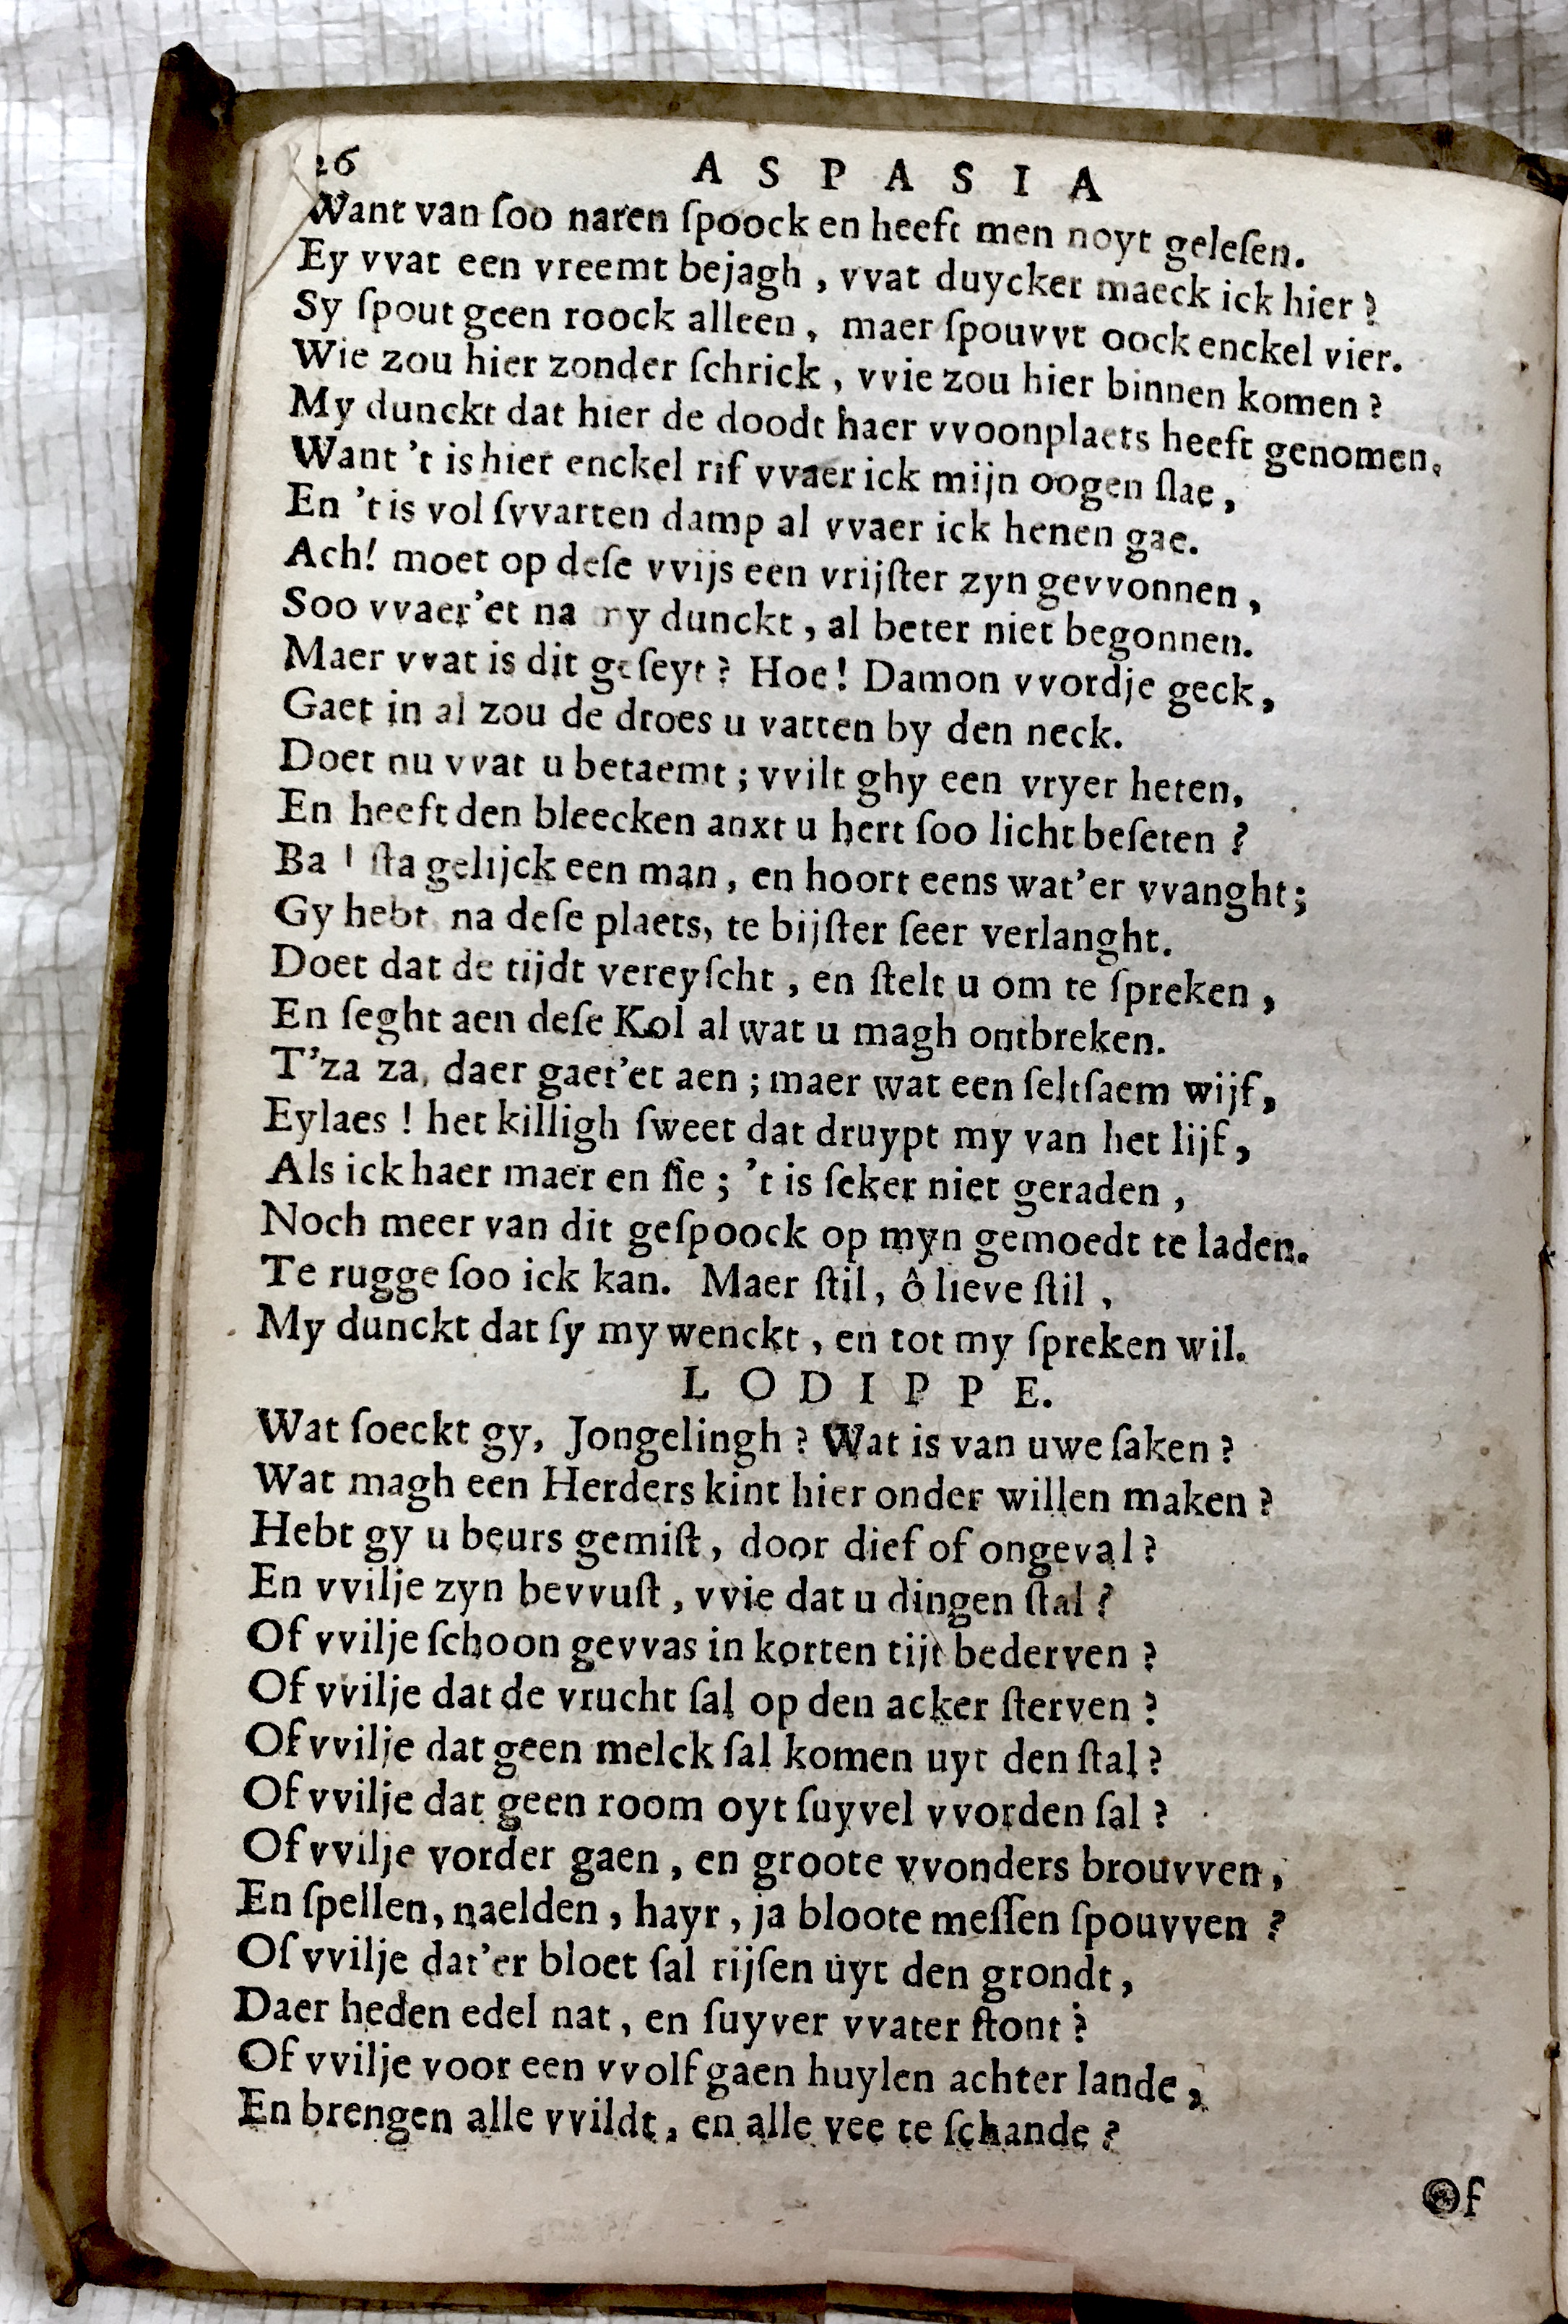 26 A S P A S I A
Want van ſoo naren ſpoock en heeft men noyt geleſen.
Ey vvat een vreemt bejagh , vvat duycker maeck ick hier ?
Sy ſpout geen roock alleen , maer ſpouvvt oock enckel vier.
Wie zou hier zonder ſchrick , vvie zou hier binnen komen ?
My dunckt dat hier de doodt haer vvoonplaets heeft genomen,
Want 't is hier enckel rif vvaer ick mijn oogen ſlae ,
En 't is vol ſvvarten damp al vvaer ick henen gae.
Ach! moet op deſe vvijs een vrijſter zyn gevvonnen ,
Soo vvaer'et na my dunckt , al beter niet begonnen.
Maer vvat is dit geſeyt ? Hoe! Damon vvordje geck,
Gaet in al zou de droes u vatten by den neck.
Doet nu vvat u betaemt ; vvilt ghy een vryer heten,
En heeft den bleecken anxt u hert ſoo licht beſeten ?
Ba ! ſta gelijck een man , en hoort eens wat'er vvanght ;
Gy hebt na deſe plaets, te bijſter ſeer verlanght.
Doet dat de tijdt vereyſcht , en ſtelt u om te ſpreken ,
En ſeght aen deſe Kol al wat u magh ontbreken.
T'za za, daer gaet'et aen ; maer wat een ſeltſaem wijf,
Eylaes ! het killigh ſweet dat druypt my van het lijf ,
Als ick haer maer en ſie ; 't is ſeker niet geraden ,
Noch meer van dit geſpoock op myn gemoedt te laden.
Te rugge ſoo ick kan. Maer ſtil, ô lieve ſtil ,
My dunckt dat ſy my wenckt , en tot my ſpreken wil.
L O D I P P E.
Wat ſoeckt gy, Jongelingh ? Wat is van uwe ſaken ?
Wat magh een Herders kint hier onder willen maken ?
Hebt gy u beurs gemiſt , door dief of ongeval ?
En vvilje zyn bevvuſt , vvie dat u dingen ſtal ?
Of vvilje ſchoon gevvas in korten tijt bederven ?
Of vvilje dat de vrucht ſal op den acker ſterven ?
Of vvilje dat geen melck ſal komen uyt den ſtal ?
Of vvilje dat geen room oyt ſuyvel vvorden ſal ?
Of vvilje vorder gaen , en groote vvonders brouvven ,
En ſpellen, naelden , hayr , ja bloote meſſen ſpouvven ?
Of vvilje dat'er bloet ſal rijſen uyt den grondt ,
Daer heden edel nat , en ſuyver vvater ſtont ?
Of vvilje voor een vvolf gaen huylen achter lande ,
En brengen alle vvildt , en alle vee te ſchande ?
Of